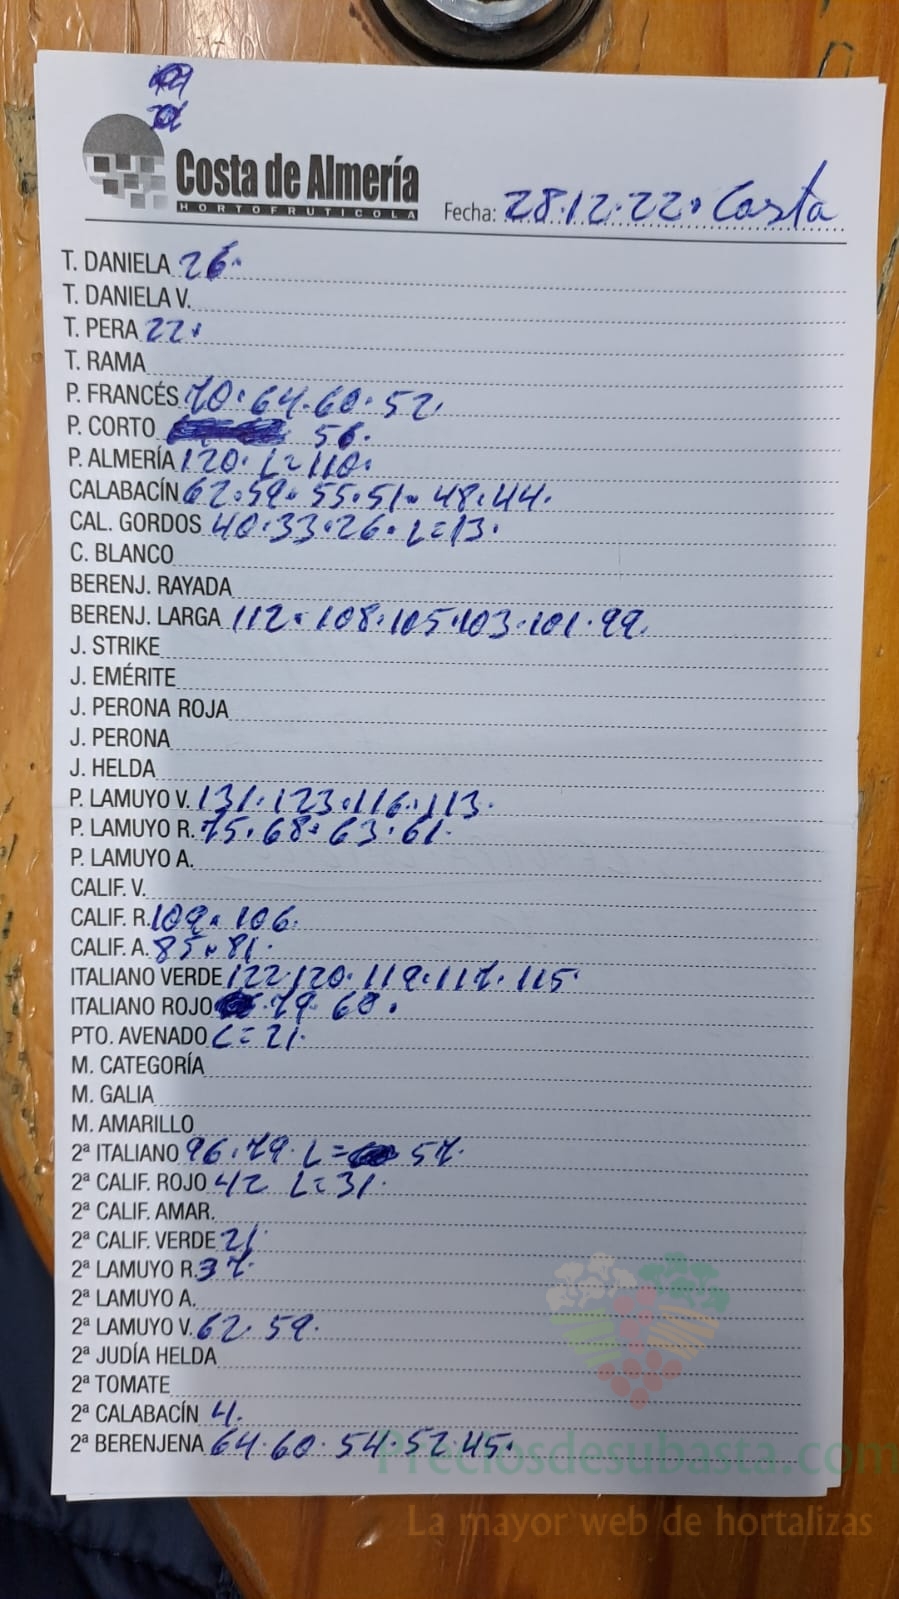 Costa de Almería
HORTOFRUTICOLA
Fecha: 28.12.22. Costa
T. DANIELA 26.
T. DANIELA V.
T. PERA 22.
T. RAMA
P. FRANCÉS 70.64.60.52.
P. CORTO 56.
P. ALMERÍA 120. L=110.
CALABACÍN 62.59.55.51.48.44.
CAL. GORDOS 40.33.26. L=13.
C. BLANCO
BERENJ. RAYADA
BERENJ. LARGA 112.108.105.103.101.99.
J. STRIKE
J. EMÉRITE
J. PERONA ROJA
J. PERONA
J. HELDA
P. LAMUYO V. 131.123.116.113.
P. LAMUYO R. 75.68.63.61.
P. LAMUYO A.
CALIF. V.
CALIF. R. 109.106.
CALIF. A. 85.81.
ITALIANO VERDE 122.120.119.117.115.
ITALIANO ROJO 79.
PTO. AVENADO L=21.
M. CATEGORÍA
M. GALIA
M. AMARILLO
2ª ITALIANO 96.79. L= 57.
2ª CALIF. ROJO 42 L=31.
2ª CALIF. AMAR.
2ª CALIF. VERDE 21.
2ª LAMUYO R. 37.
2ª LAMUYO A.
2ª LAMUYO V. 62.59.
2ª JUDÍA HELDA
2ª TOMATE
2ª CALABACÍN 4.
2ª BERENJENA 64.60.54.52.45.
Preciosdesubasta.com
La mayor web de hortalizas